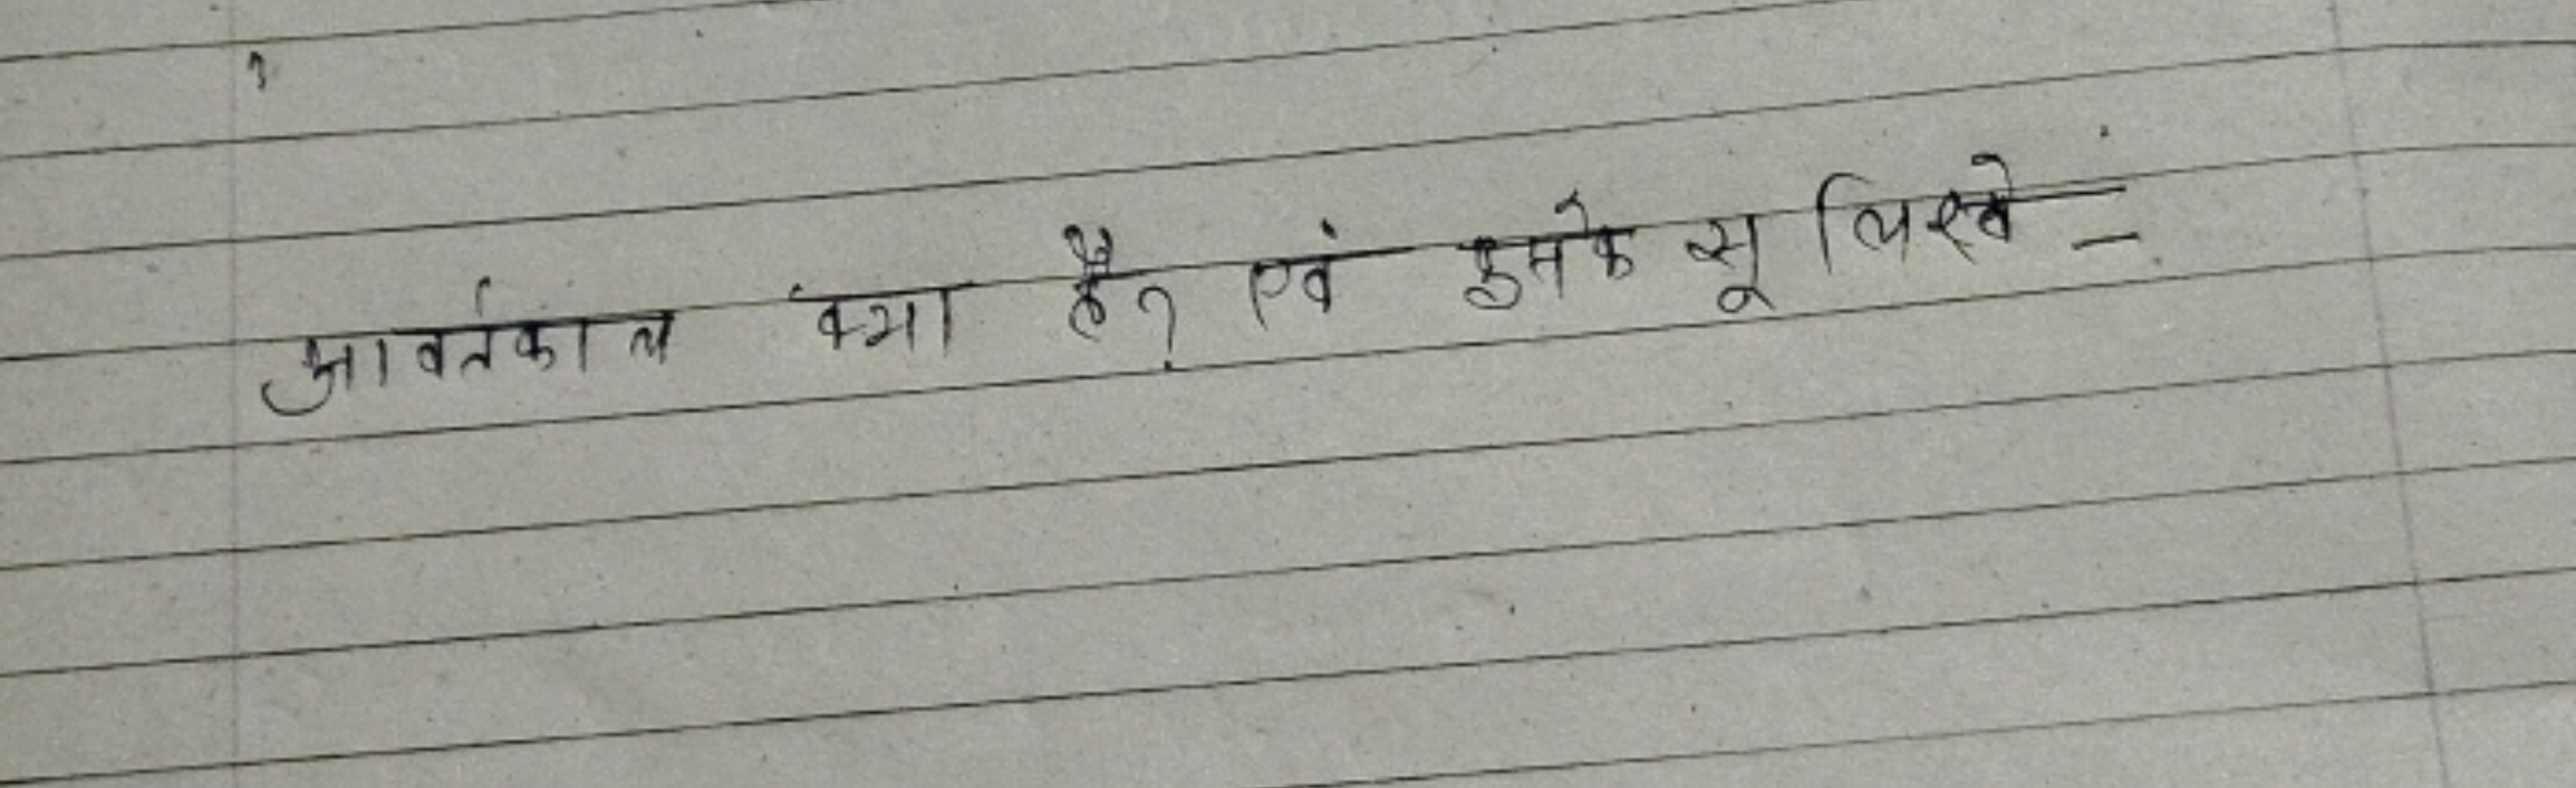 आवर्तकाल क्या है? एवं इसके सू लिखे –